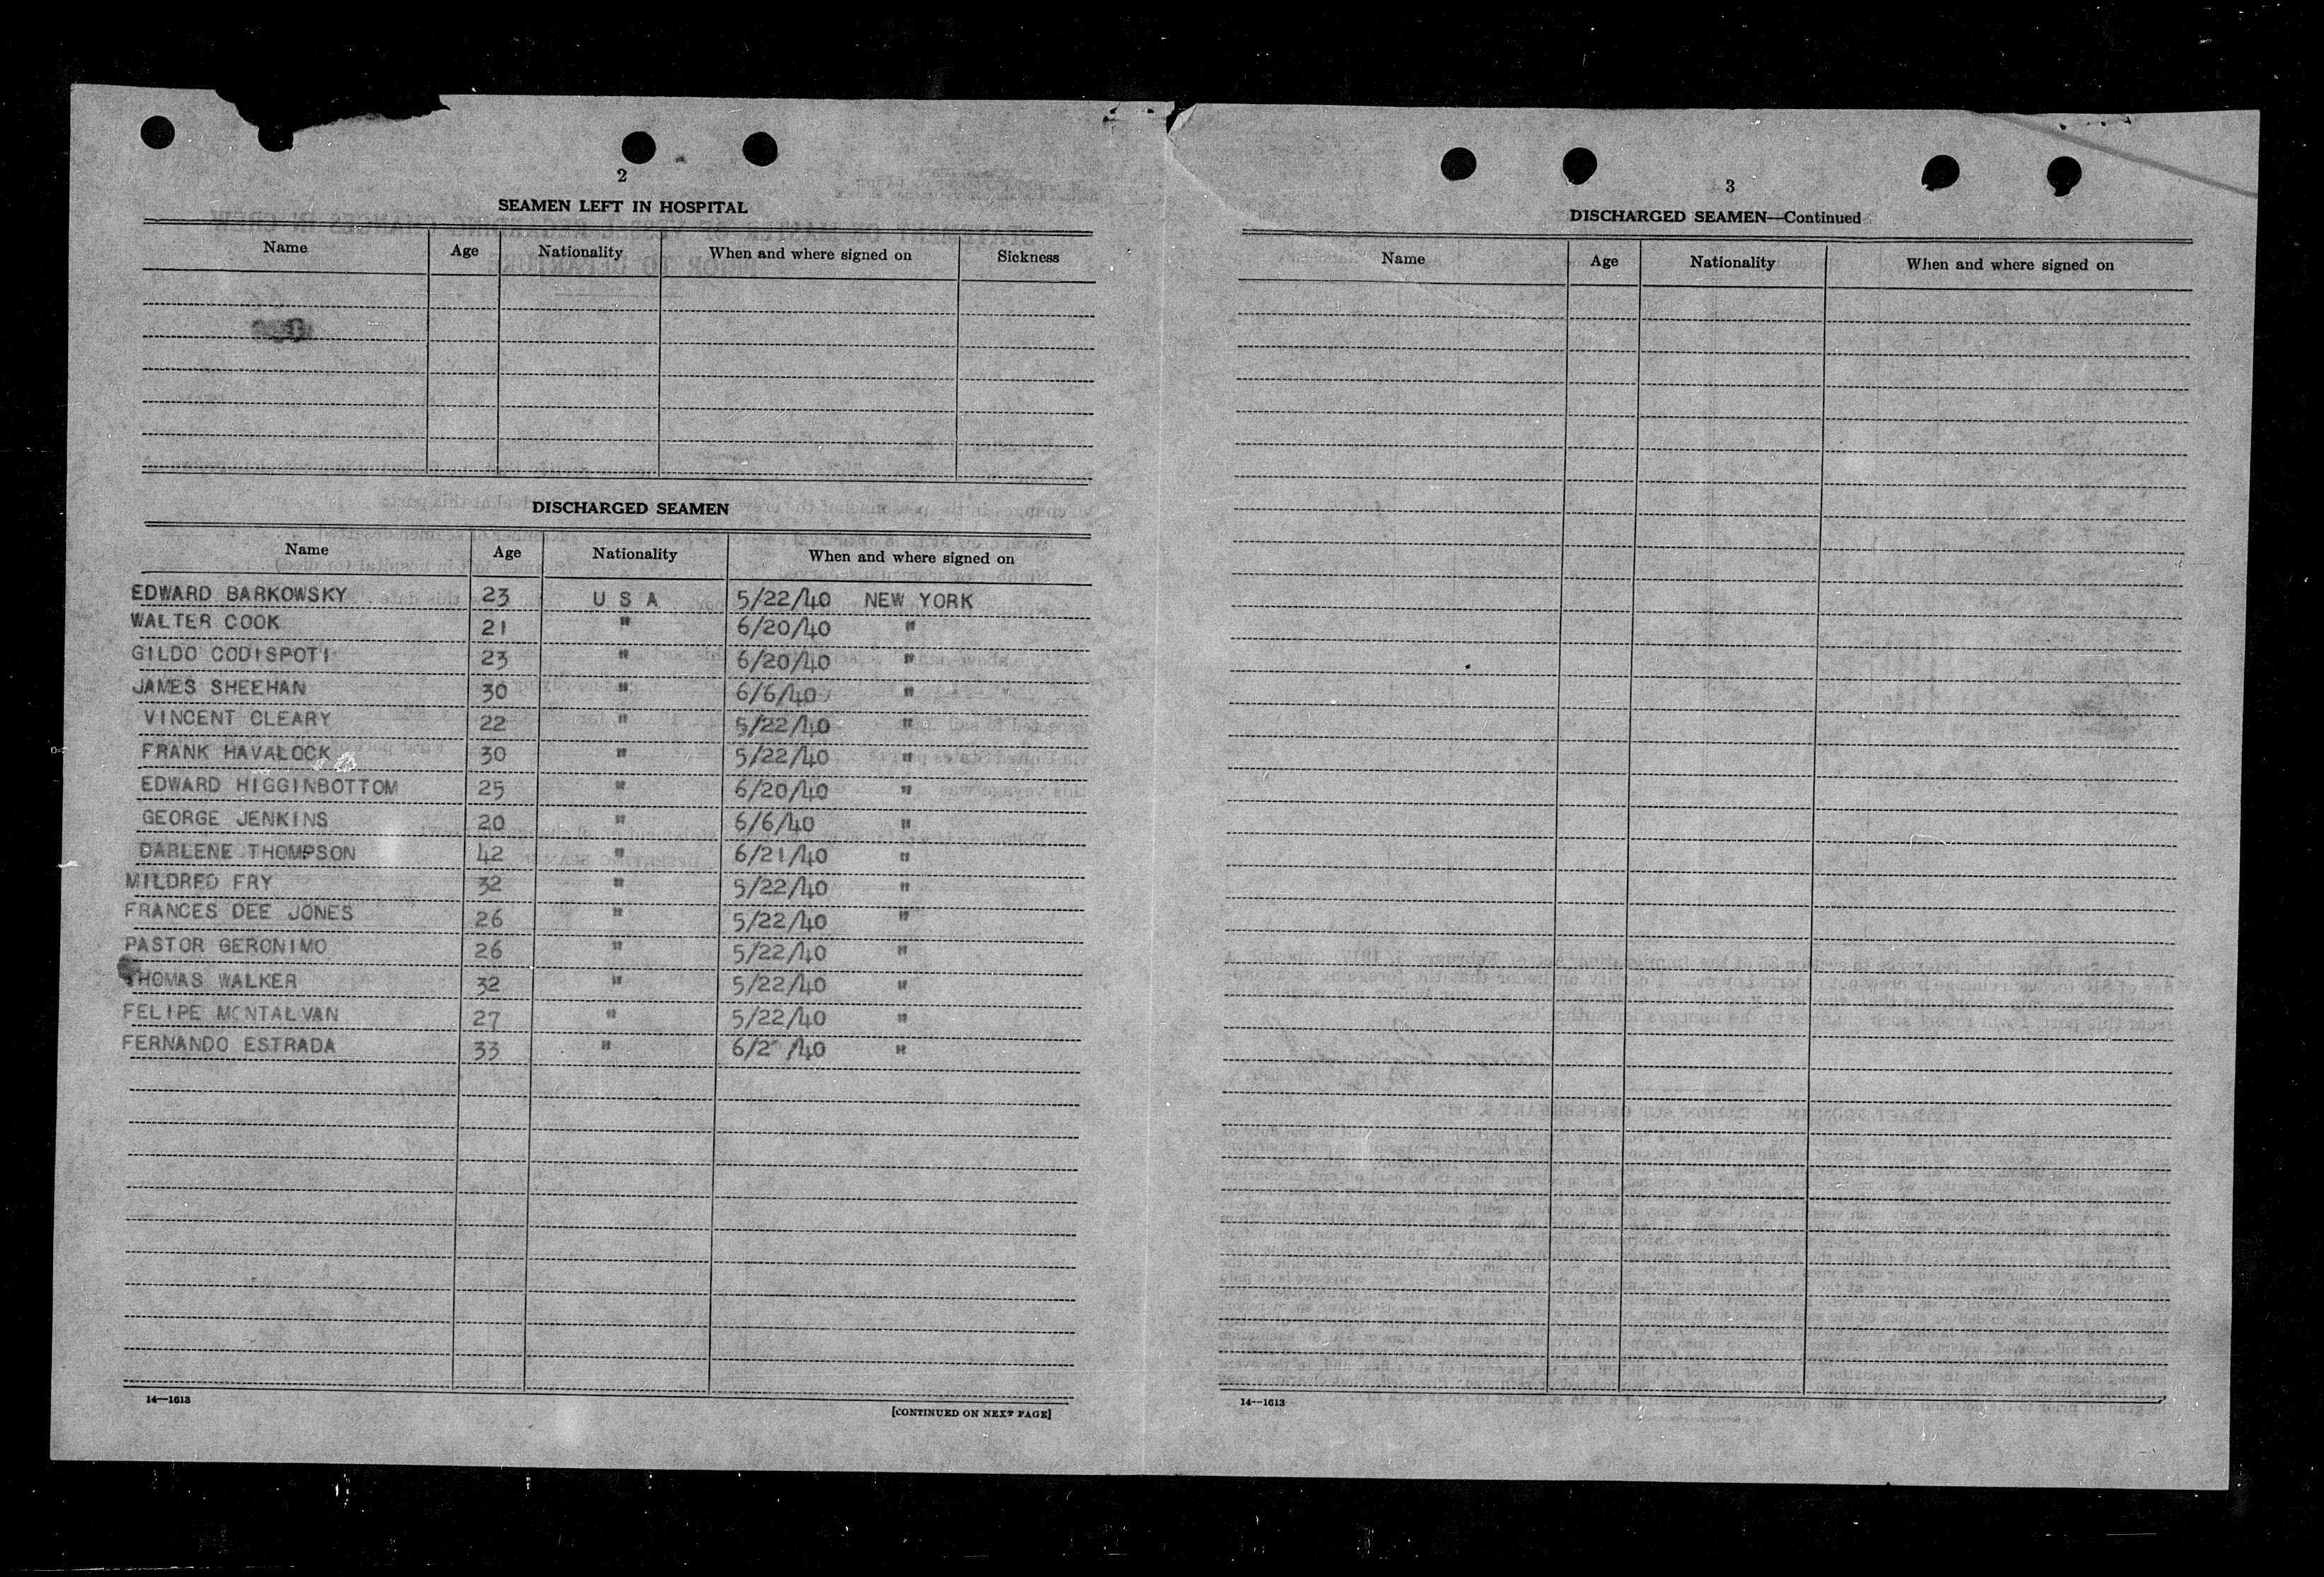 2
SEAMEN LEFT IN HOSPITAL
Name Age Nationality When and where signed on Sickness
DISCHARGED SEAMEN
Name Age Nationality When and where signed on
EDWARD BARKOWSKY 23 U S A 5/22/40 NEW YORK
WALTER COOK 21 " 6/20/40 "
GILDO CODISPOTI 23 " 6/20/40 "
JAMES SHEEHAN 30 " 6/6/40 "
VINCENT CLEARY 22 " 5/22/40 "
FRANK HAVALOCK 30 " 5/22/40 "
EDWARD HIGGINBOTTOM 25 " 6/20/40 "
GEORGE JENKINS 20 " 6/6/40 "
DARLENE THOMPSON 42 " 6/21/40 "
MILDRED FRY 32 " 5/22/40 "
FRANCES DEE JONES 26 " 5/22/40 "
PASTOR GERONIMO 26 " 5/22/40 "
THOMAS WALKER 32 " 5/22/40 "
FELIPE MONTALVAN 27 " 5/22/40 "
FERNANDO ESTRADA 33 " 6/2 /40 "
14—1613
[CONTINUED ON NEXT PAGE]
3
DISCHARGED SEAMEN—Continued
Name Age Nationality When and where signed on
14—1613